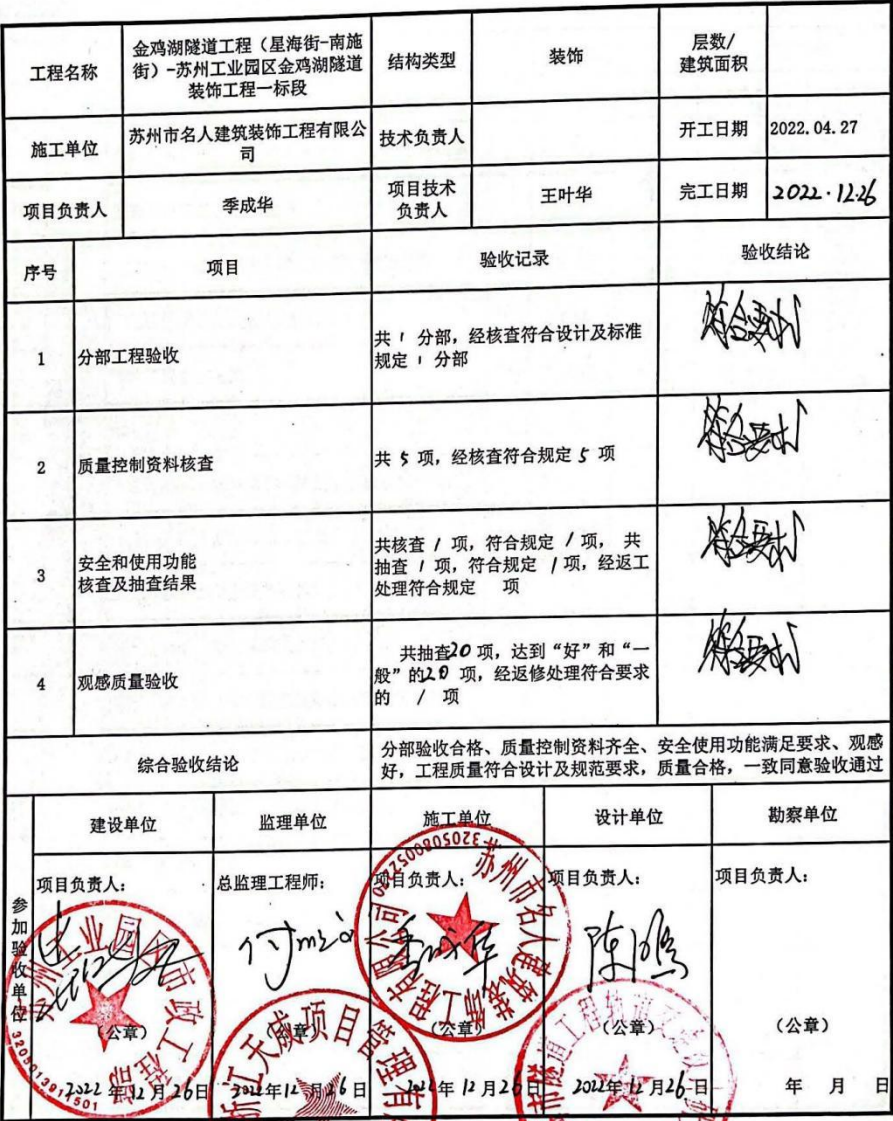 工程名称
金鸡湖隧道工程（星海街-南施
街）-苏州工业园区金鸡湖隧道
装饰工程一标段
结构类型
装饰
层数/
建筑面积
施工单位
苏州市名人建筑装饰工程有限公
司
技术负责人
开工日期
2022.04.27
项目负责人
季成华
项目技术
负责人
王叶华
完工日期
2022.12.26
序号
项目
验收记录
验收结论
1
分部工程验收
共 1 分部，经核查符合设计及标准
规定 1 分部
符合要求
2
质量控制资料核查
共 5 项，经核查符合规定 5 项
符合要求
3
安全和使用功能
核查及抽查结果
共核查 / 项，符合规定 / 项， 共
抽查 / 项，符合规定 / 项，经返工
处理符合规定 项
符合要求
4
观感质量验收
共抽查20 项，达到“好”和“一
般”的20 项，经返修处理符合要求
的 / 项
符合要求
综合验收结论
分部验收合格、质量控制资料齐全、安全使用功能满足要求、观感
好，工程质量符合设计及规范要求，质量合格，一致同意验收通过
参加验收单位
建设单位
监理单位
施工单位
设计单位
勘察单位
项目负责人：
总监理工程师：
项目负责人：
项目负责人：
项目负责人：
季成华
陈鹏
（公章）
（公章）
（公章）
（公章）
（公章）
2022年12月26日
2022年12月26日
2022年12月26日
2022年12月26日
年 月 日
苏州工业园区市政工程部
浙江天威项目管理有
苏州市名人建筑装饰工程有限公司